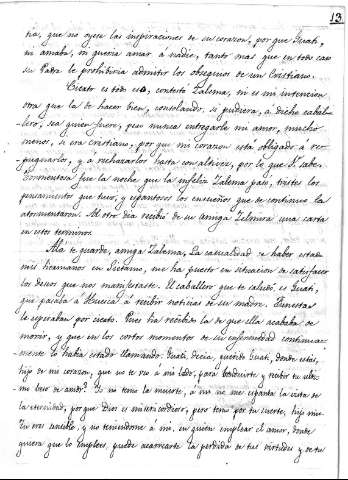 13
tia, que no oyese las inspiraciones de su corazon, por que Guati,
ni amaba, ni queria amar á nadie, tanto mas que en todo caso
su Padre le prohibiria admitir los obsequios de un Cristiano.
Cierto es todo eso, contestó Zalema, ni es mi intencion
otra que la de hacer bien, consolando, si pudiera, á dicho caball-
ero, sea quien fuere, pero nunca entregarle mi amor, mucho
menos, si era cristiano, por que mi corazon está obligado á re-
pugnarlos, y á rechazarlos hasta con altivez, por lo que V. sabe.
Tormentosa fue la noche que la infeliz Zalema pasó, tristes los
pensamientos que tuvo, y espantosos los ensueños que de continuo la
atormentaron. Al otro dia recibió de su amiga Zelmira una carta
en estos terminos.
Alá te guarde, amiga Zalema, La casualidad de haber estado
mis hermanos en me ha puesto en situacion de satisfacer
los deseos que nos manifestaste. El caballero que te saludó, es Guati,
que pasaba á Huesca á recibir noticias de su madre. Funestas
le esperaban por cierto. Pues ha recibido la de que ella acababa de
morir, y que en los cortos momentos de su enfermedad continua-
mente lo habia estado llamando. Guati, decia, querido Guati, donde estas,
hijo de mi corazon, que no te veo á mi lado, para bendecirte y recibir tu ulti-
mo beso de amor? Yo no temo la muerte, á mi no me espanta la vista de
la eternidad, porque Dios es misericordioso, pero temo por tu suerte, hijo mio.
Tu eres sensible, y no teniendome á mi, en quien emplear el amor, donde
quiera que lo emplees, puede acarrearte la perdida de tus virtudes y de tu